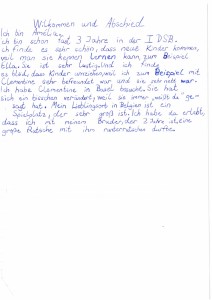 Willkommen und Abschied
Ich bin Amélie,
Ich bin schon fast 3 Jahre in der IDSB.
Ich finde es sehr schön, dass neue Kinder kommen,
weil man sie kennen lernen kann, zum Beispiel
Ella. Sie ist sehr lustig. Und ich finde
es blöd, dass Kinder umziehen, weil ich zum Beispiel mit
Clementine sehr befreundet war, und sie sehr nett war.
Ich habe Clementine in Basel besucht. Sie hat
sich ein bisschen verändert, weil sie immer „weißt du" ge-
sagt hat. Mein Lieblingsort in Belgien ist ein
Spielplatz, der sehr groß ist. Ich habe da erlebt,
dass ich mit meinem Bruder, der 2 Jahre ist, eine
große Rutsche mit ihm runterrutschen durfte.